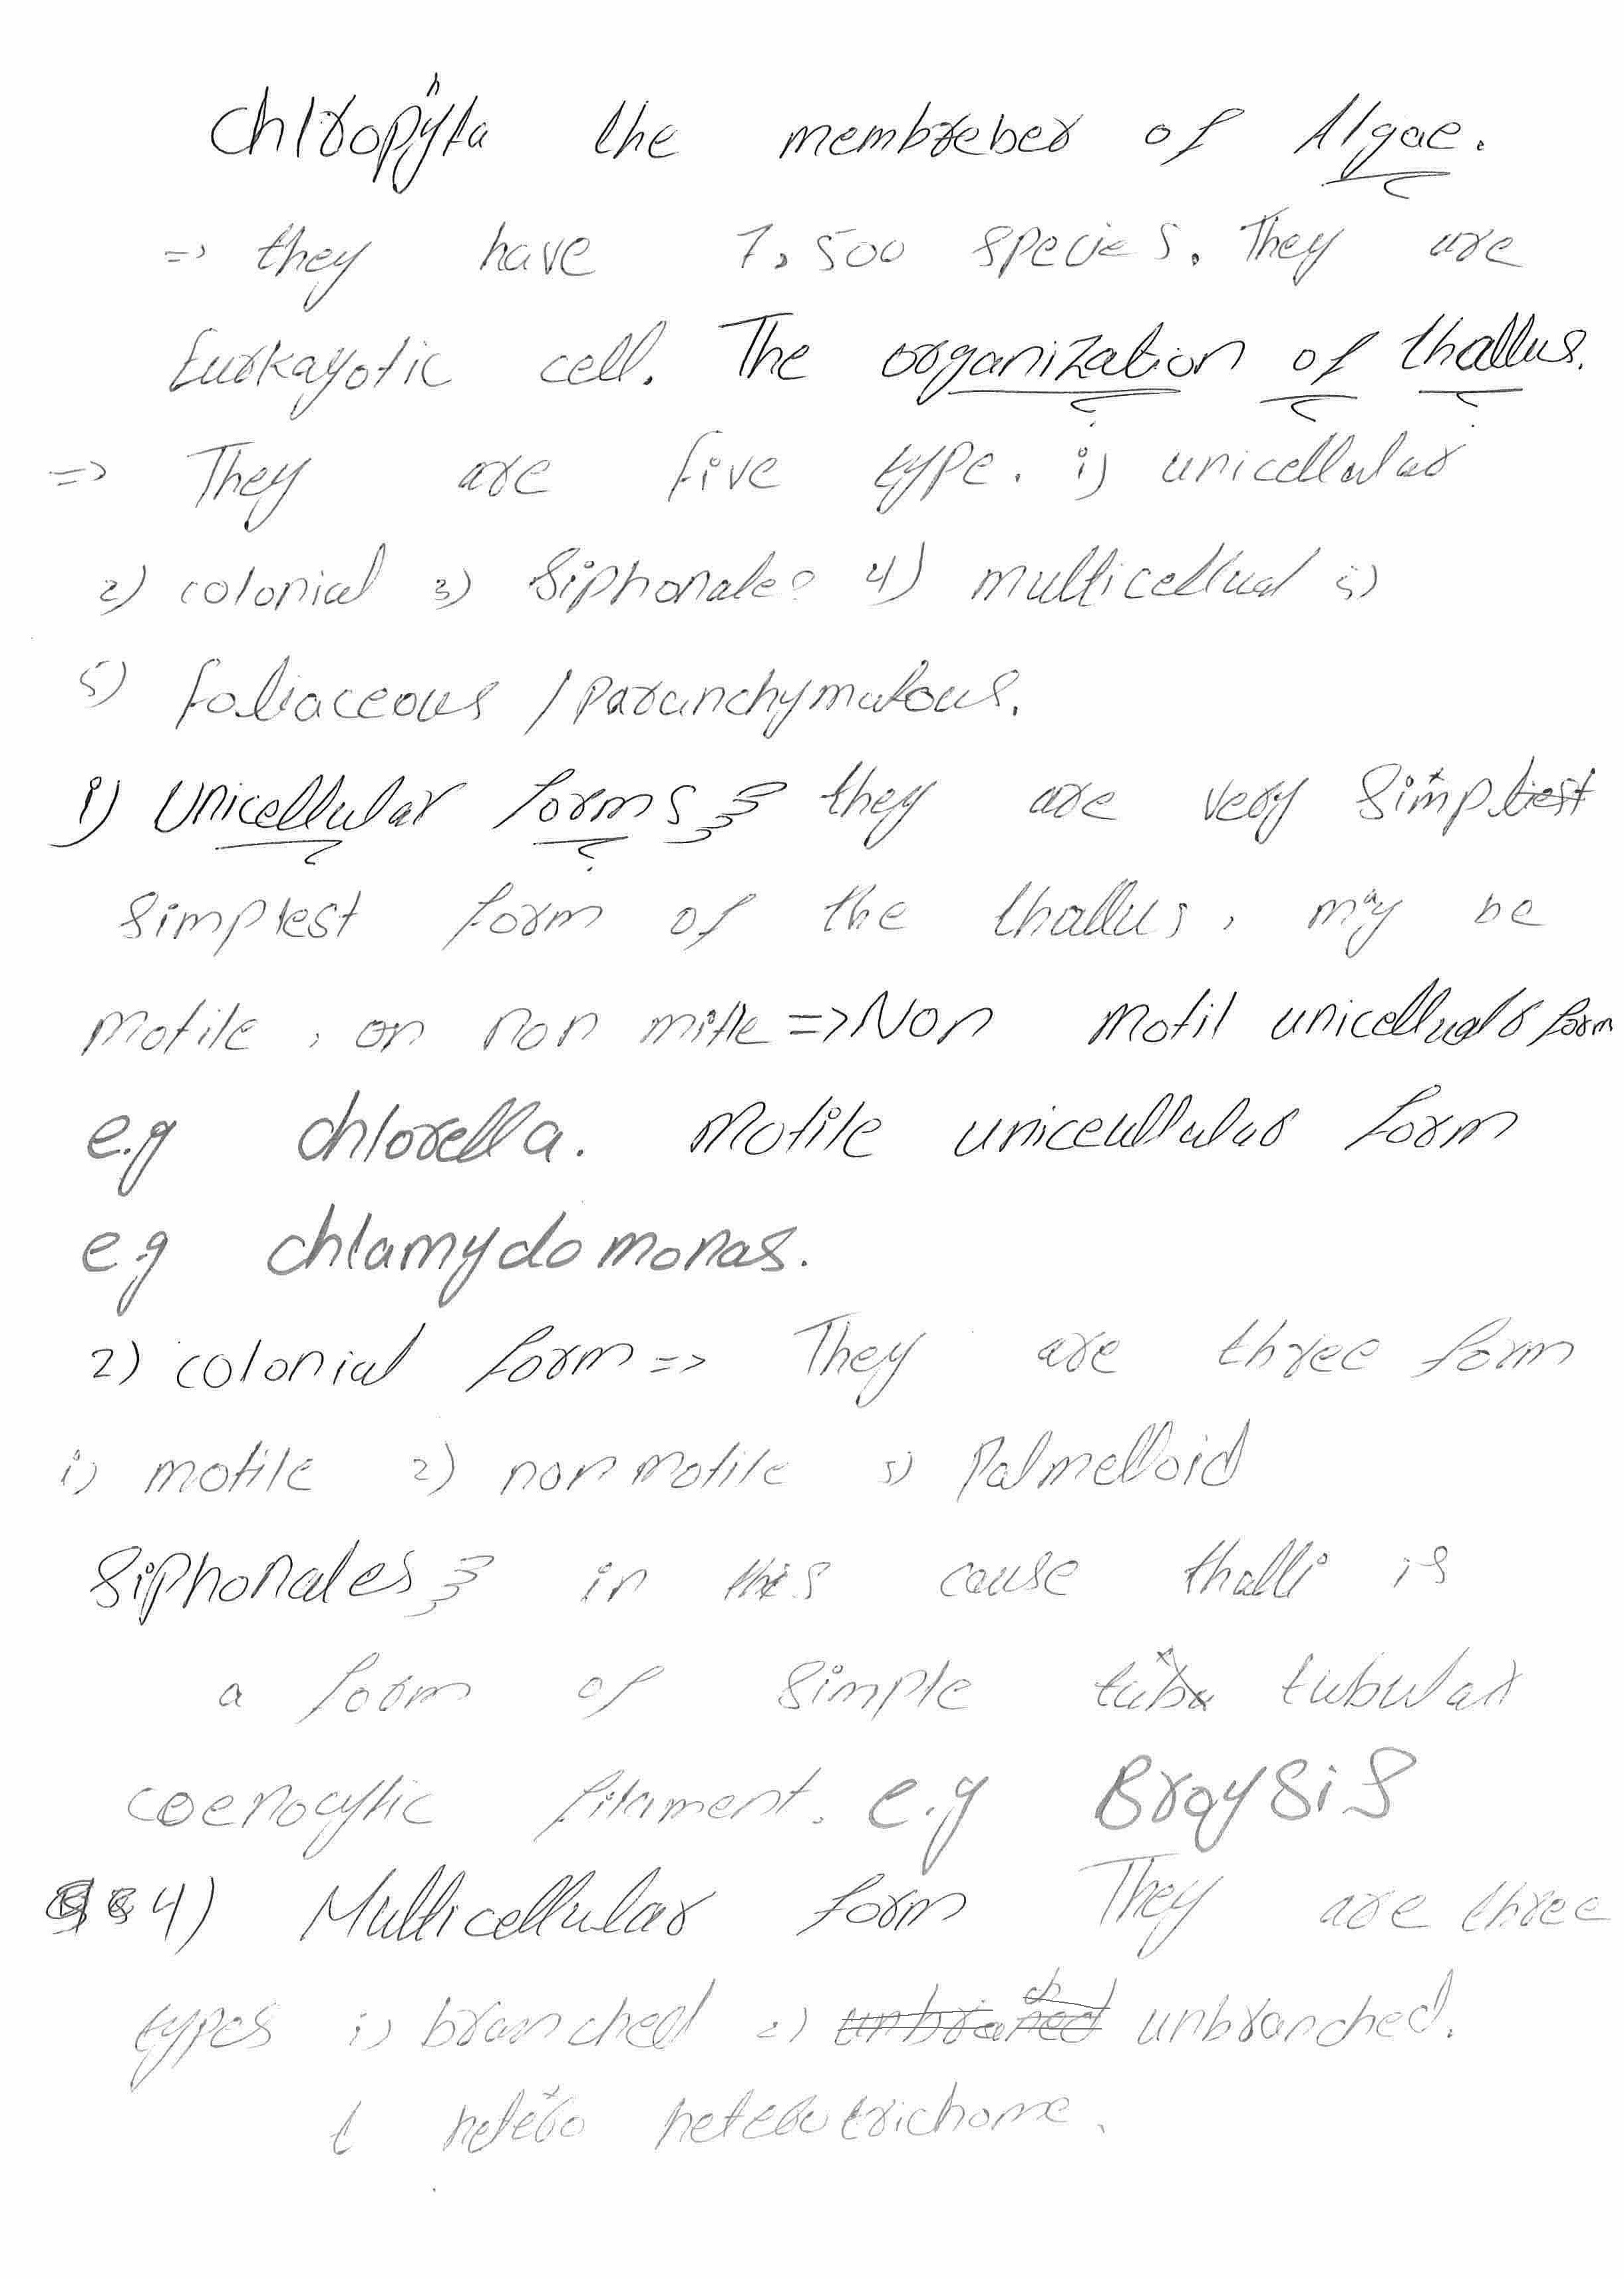 Chlropyta the membreber of Algae.
=> they have 7,500 species. They are
Eurkayotic cell. The organization of thallus.
=> They are five type. i) unicellular
2) colonial 3) Siphonales 4) multicellual 5)
5) foliaceous / paranchymatous.
i) Unicellular forms they are very simplest
simplest form of the thallus, may be
motile, on non mitle => Non motil unicellualr form
e.g chlorella. Motile uniceullular form
e.g chlamydomonas.
2) colonial form => They are three form
i) motile 2) non motile 3) Palmelloid
Siphonales in this cause thalli is
a form of simple tuba tubular
coenocytic filament. e.g Braysis
4) Multicellular form They are three
types i) branched 2) unbranched unbranched.
hetero heterotrichome.